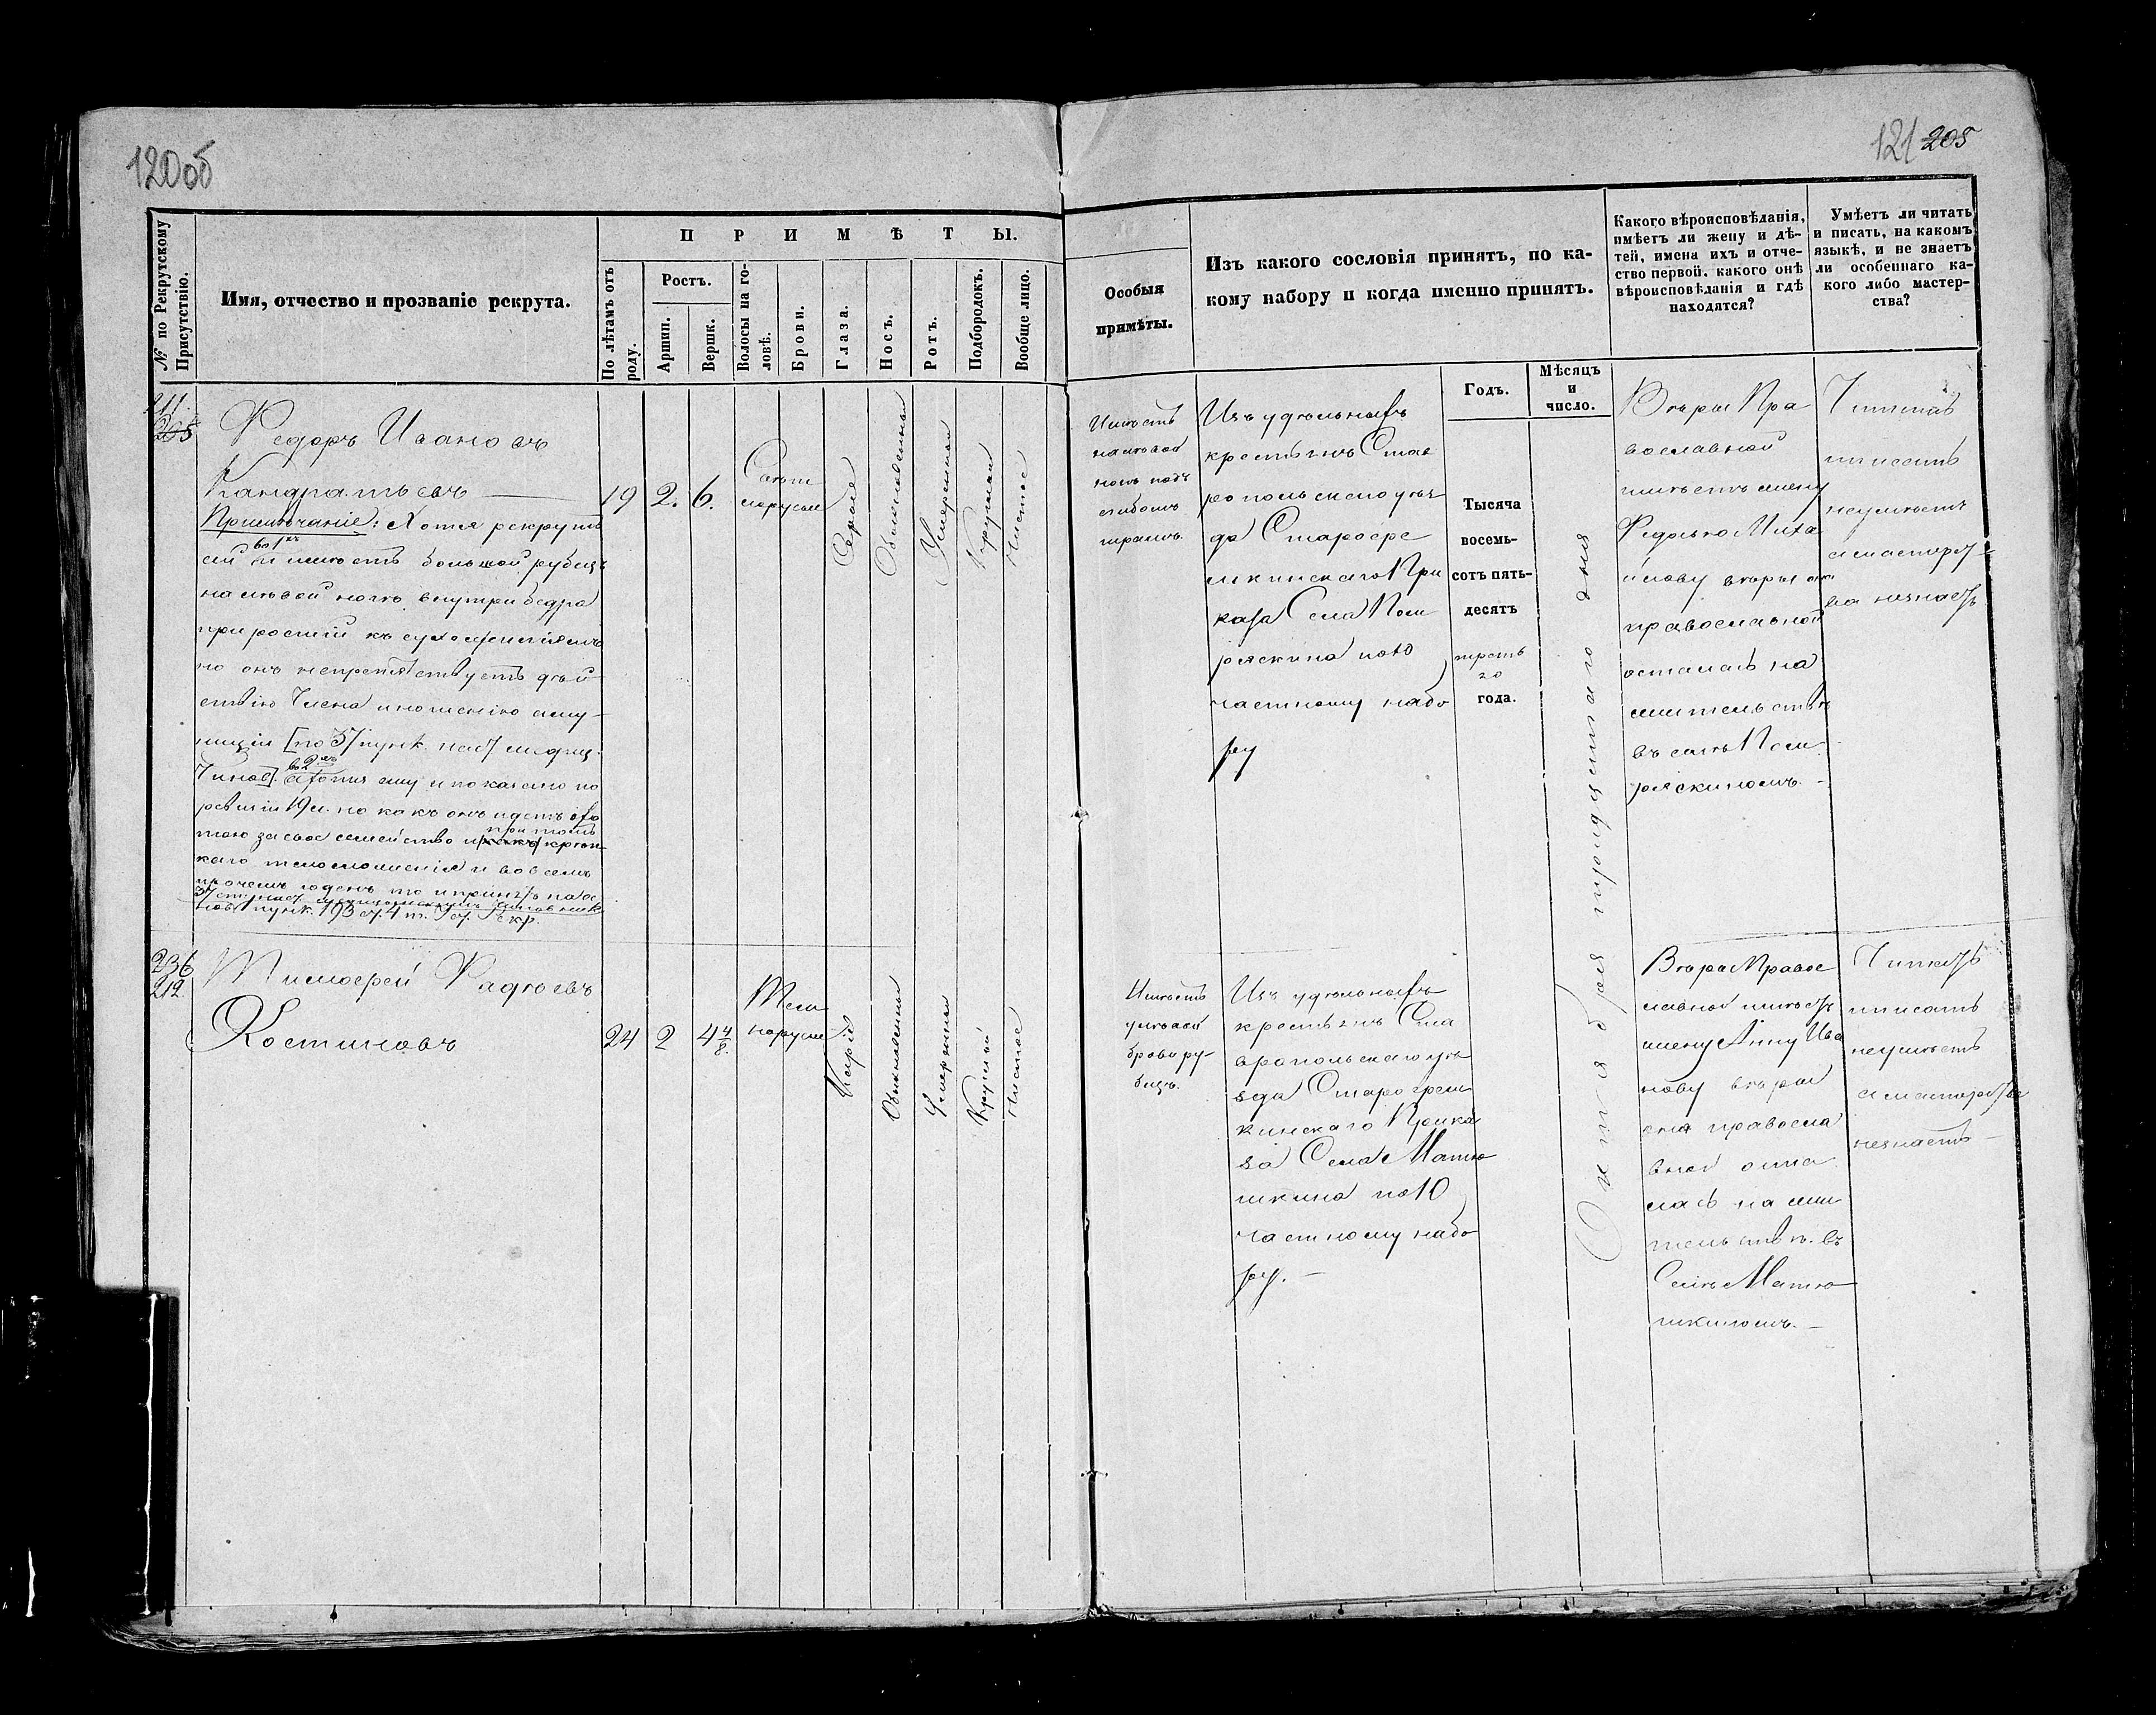 120об
121 205
№ по Рекрутскому Присутствію.
Имя, отчество и прозваніе рекрута.
П Р И М Ѣ Т Ы.
По лѣтамъ отъ роду.
Ростъ.
Аршин.
Вершк.
Волосы на головѣ.
Брови.
Глаза.
Носъ.
Ротъ.
Подбородокъ.
Вообще лицо.
Особыя
примѣты.
Изъ какого сословія принятъ, по ка-
кому набору и когда именно принятъ.
Годъ.
Мѣсяцъ
и
число.
Какого вѣроисповѣданія,
имѣетъ ли жену и дѣ-
тей, имена ихъ и отче-
ство первой, какого онѣ
вѣроисповѣданія и гдѣ
находятся?
Умѣетъ ли читать
и писать, на какомъ
языкѣ, и не знаетъ
ли особеннаго ка-
кого либо мастер-
ства?
211.
205
Федоръ Ивановъ
Кандратьевъ
Примѣчаніе: Хотя рекрутъ
сей во 1хъ и имѣетъ большой рубецъ
на лѣвой ногѣ внутри бедра
приросшій къ сухожиліямъ
но онъ непрепятствуетъ дѣй-
ствію Члена и ношенію аму-
ниціи [по 37 пунк. наст. медиц.
Чинов]. во 2хъ хотя ему и показано по
ревизіи 19 л. но какъ онъ идетъ охо
тою за свое семейство и притомъ крѣп-
каго тѣлосложенія и во всемъ
прочемъ годенъ то и принятъ на ос
нов 1 пунк. 193 ст. 4 т.
19
2.
6.
Свѣт
лорусые
Серые
Обыкновенный
Умеренный
Круглый
Чистое
Имѣетъ
на лѣвой
ногѣ подъ
сгибомъ
шрамъ.
Изъ удѣльныхъ
крестьянъ Став
ропольскаго уѣз
да Старогре
мкинскаго При
каза Села Пом
ряскина по 10
частному набо
ру
Тысяча
восемь-
сотъ пять-
десятъ
третьяго
года.
Октября тридцатаго дня
Вѣры Пра
вославной
имѣетъ жену
Федосью Миха
йлову вѣры она
православной
осталась на
жительствѣ
въ селѣ Пом
ряскиномъ.
Читать
писать
неумѣетъ
а мастерст-
ва незнаетъ
236
212
Тимофей Фадѣевъ
Костиновъ
24
2
4 4/8.
Тем
норусые
Каріе
Обыкновенный
Умеренный
Круглый
Чистое
Имѣетъ
у лѣвой
брови ру-
бецъ.
Изъ удѣльныхъ
крестьянъ Ста
вропольскаго уѣ
зда Старогрем
кинскаго Прика
за Села Матю
шкина по 10
частному набо
ру.
Вѣры Правос
лавной имѣетъ
жену Анну Ива
нову вѣры
она правосла
вной оста
лась на жи
тельствѣ въ
Селѣ Матю
шкиномъ.
Читать
писать
неумѣетъ
а мастерства
незнаетъ